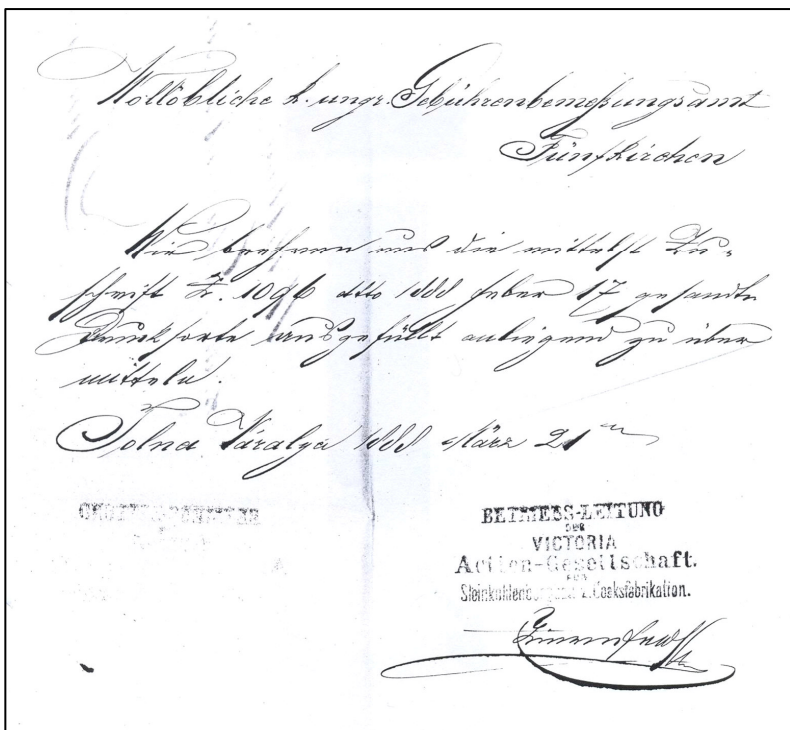 Wollöbliche k. ungr. Gebührenbemeßungsamt
Fünfkirchen
Wir beehren uns die mittelst Zu-
schrift Z. 1096 dtto 1888 feber 17 gesandte
Drucksorte ausgefüllt anliegend zu über
mitteln.
Tolna Váralya 1888 März 21
BETRIEBS-LEITUNG
DER
VICTORIA
Actien-Gesellschaft.
FÜR
Steinkohlenbergbau u. Coaksfabrikation.